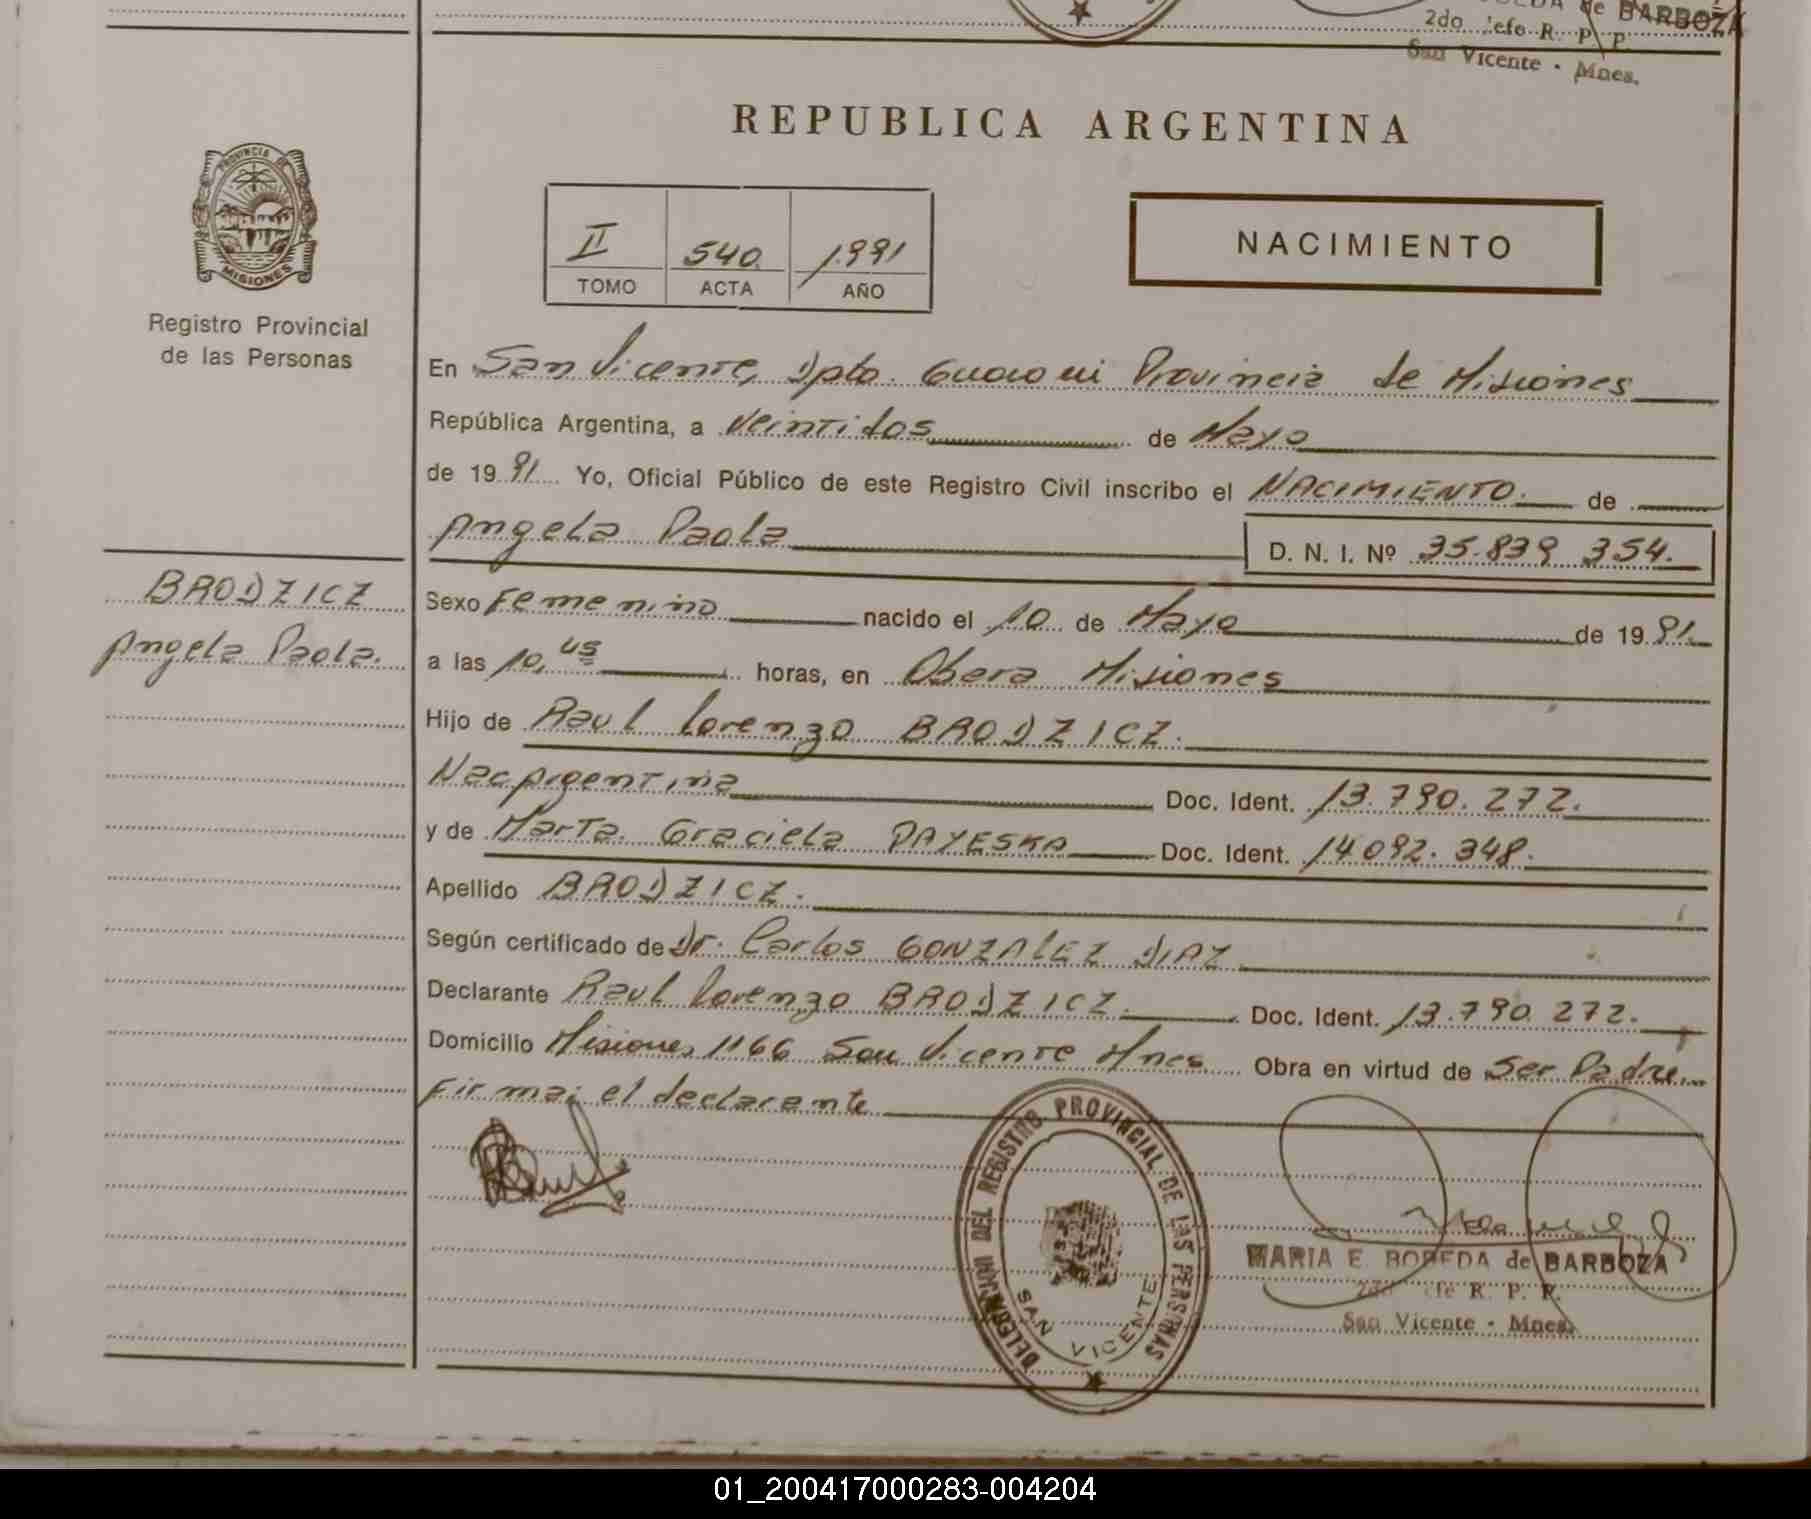 de BARBOZA
2do. Jefe R. P. P.
San Vicente - Mnes.
REPUBLICA ARGENTINA
PROVINCIA DE
MISIONES
Registro Provincial
de las Personas
II 540 1991
TOMO ACTA AÑO
NACIMIENTO
En San Vicente, Dpto. Guarani Provincia de Misiones
República Argentina, a veintidos de Mayo
de 1991 Yo, Oficial Público de este Registro Civil inscribo el NACIMIENTO de
Angela Paola
D. N. I. Nº 35.839 354.
BRODZICZ
Angela Paola.
Sexo Femenino nacido el 10 de Mayo de 1991.
a las 10,45 horas, en Obera Misiones
Hijo de Raul Lorenzo BRODZICZ.
Nac Argentina Doc. Ident. 13.790.272.
y de Marta Graciela PAYESKA Doc. Ident. 14092.348.
Apellido BRODZICZ.
Según certificado de Dr. Carlos GONZALEZ DIAZ
Declarante Raul Lorenzo BRODZICZ. Doc. Ident. 13.790 272.
Domicilio Misiones 1166 San Vicente Mnes Obra en virtud de Ser Padre.
Firma: el declarante
DELEGACION DEL REGISTRO PROVINCIAL DE LAS PERSONAS
SAN VICENTE
MARIA E. BOBEDA de BARBOZA
2do Jefe R. P. P.
San Vicente - Mnes.
01_200417000283-004204